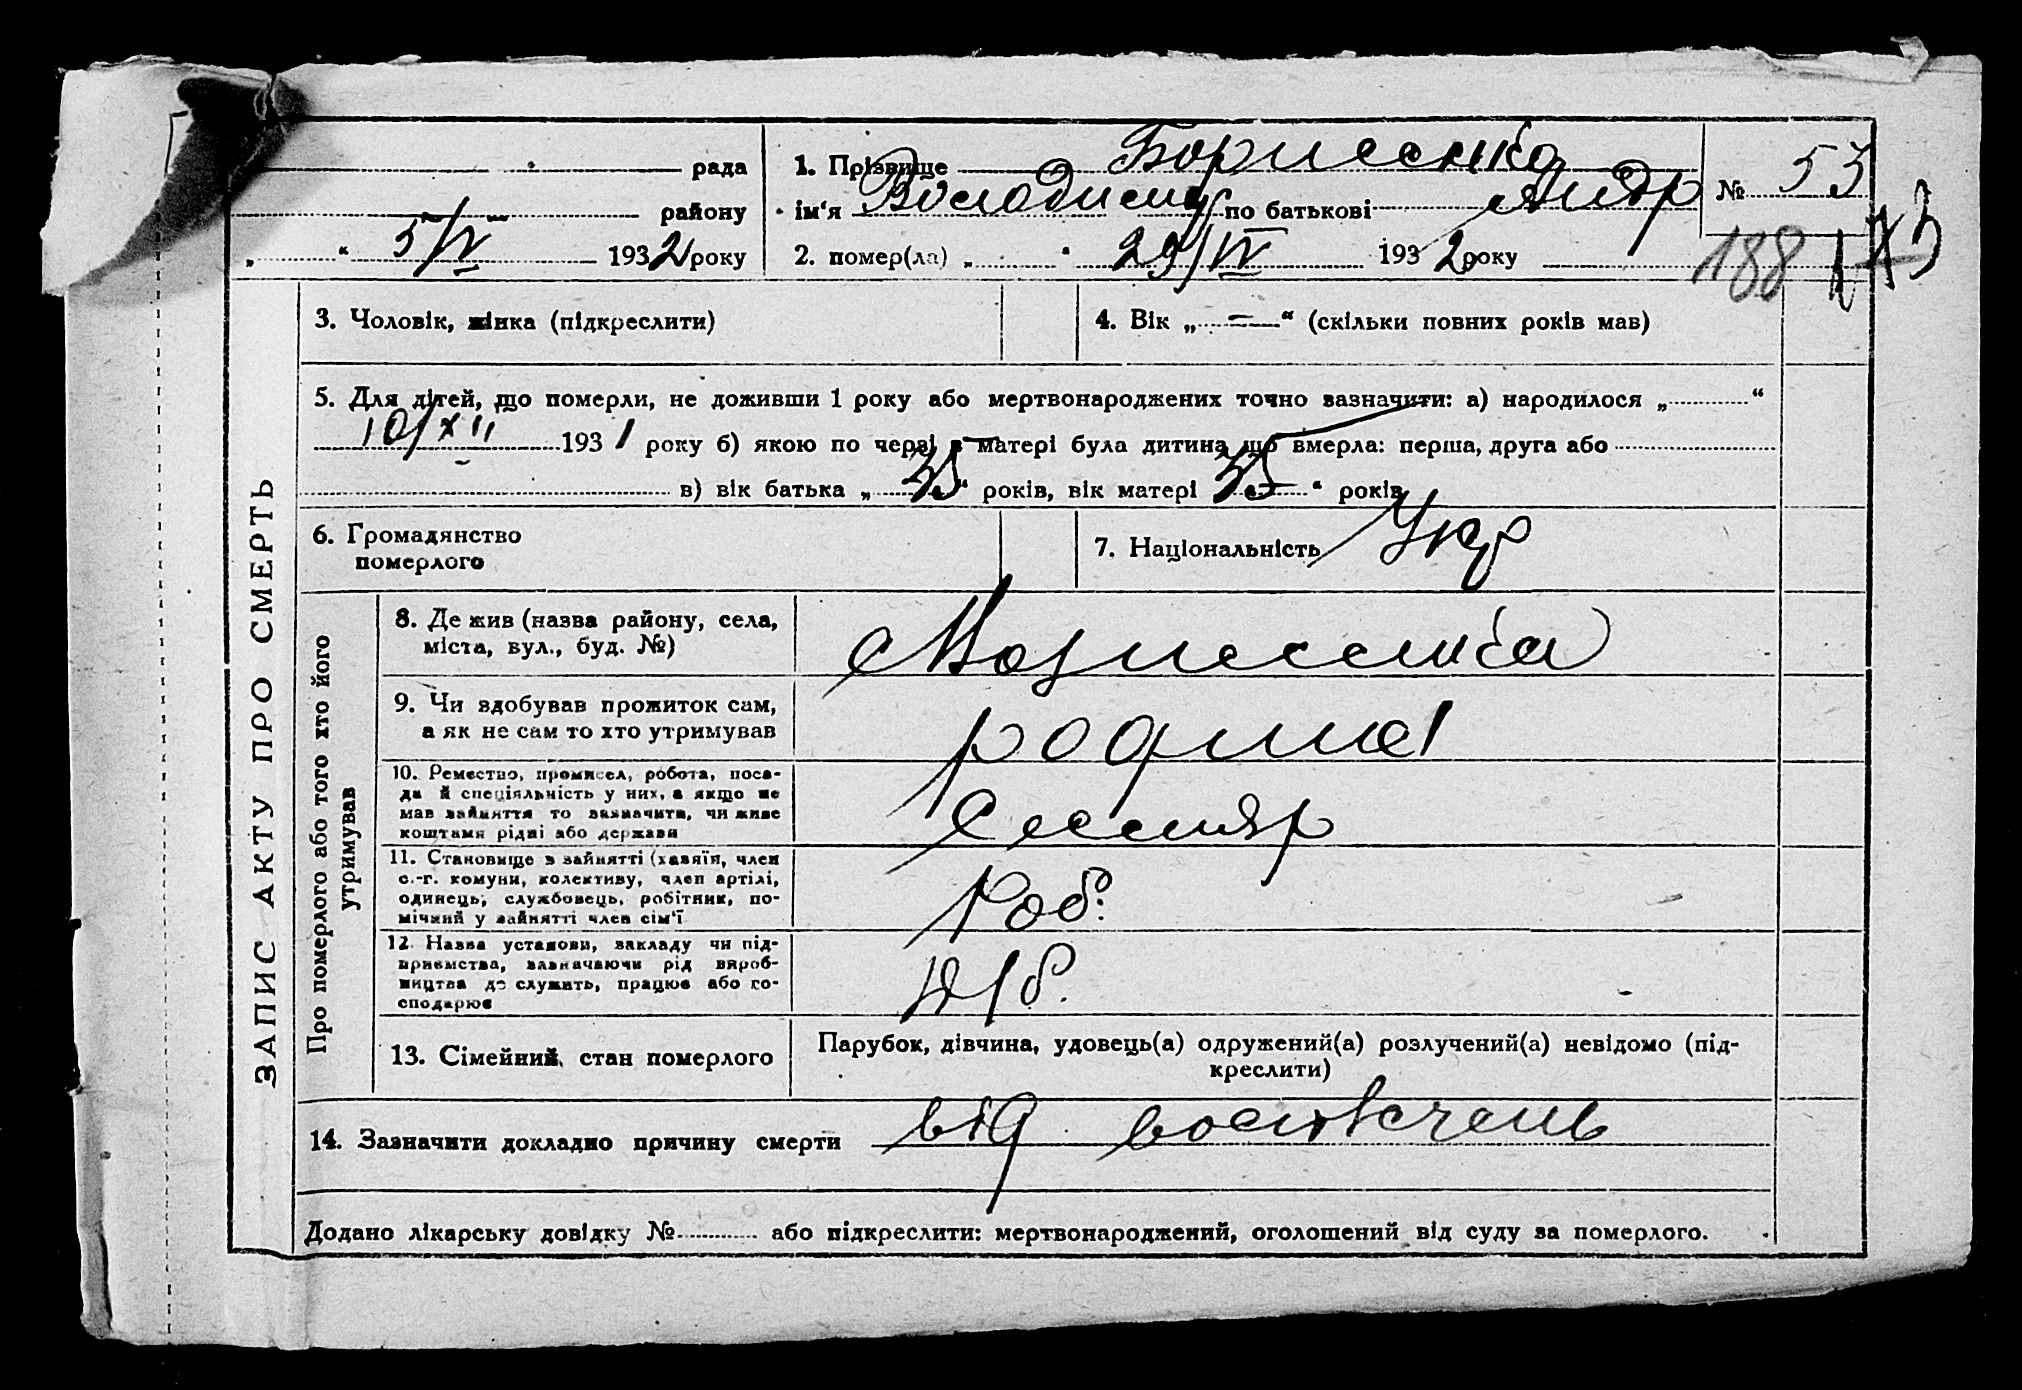 рада
району
„ “ 5/IV 1932 року
1. Прізвище Борисенко
ім‘я Володимир по батькові Андр
2. помер(ла) „ “ 29/IV 1932 року
№ 53
188 173
ЗАПИС АКТУ ПРО СМЕРТЬ
3. Чоловік, жінка (підкреслити)
4. Вік „ — “ (скільки повних років мав)
5. Для дітей, що померли, не доживши 1 року або мертвонароджених точно зазначити: а) народилося „ “
10/XII 1931 року б) якою по черзі в матері була дитина що вмерла: перша, друга або
в) вік батька „ 35 “ років, вік матері 35 “ років
6. Громадянство
померлого
7. Національність Укр
Про померлого або того хто його
утримував
8. Де жив (назва району, села,
міста, вул., буд. №)
9. Чи здобував прожиток сам,
а як не сам то хто утримував
родина
10. Ремество, промисел, робота, поса-
да й спеціяльність у них, а якщо не
мав зайняття то зазначити, чи живе
коштами рідні або держави
Слюсар
11. Становище в зайнятті (хазяїн, член
с.-г. комуни, колективу, член артілі,
одинець, службовець, робітник, по-
мічний у зайнятті член сім‘ї
Роб.
12. Назва установи, закладу чи під-
приємства, зазначаючи рід вироб-
ництва де служить, працює або го-
сподарює
13. Сімейний стан померлого
Парубок, дівчина, удовець(а) одружений(а) розлучений(а) невідомо (під-
креслити)
14. Зазначити докладно причину смерти від
Додано лікарську довідку № або підкреслити: мертвонароджений, оголошений від суду за померлого.